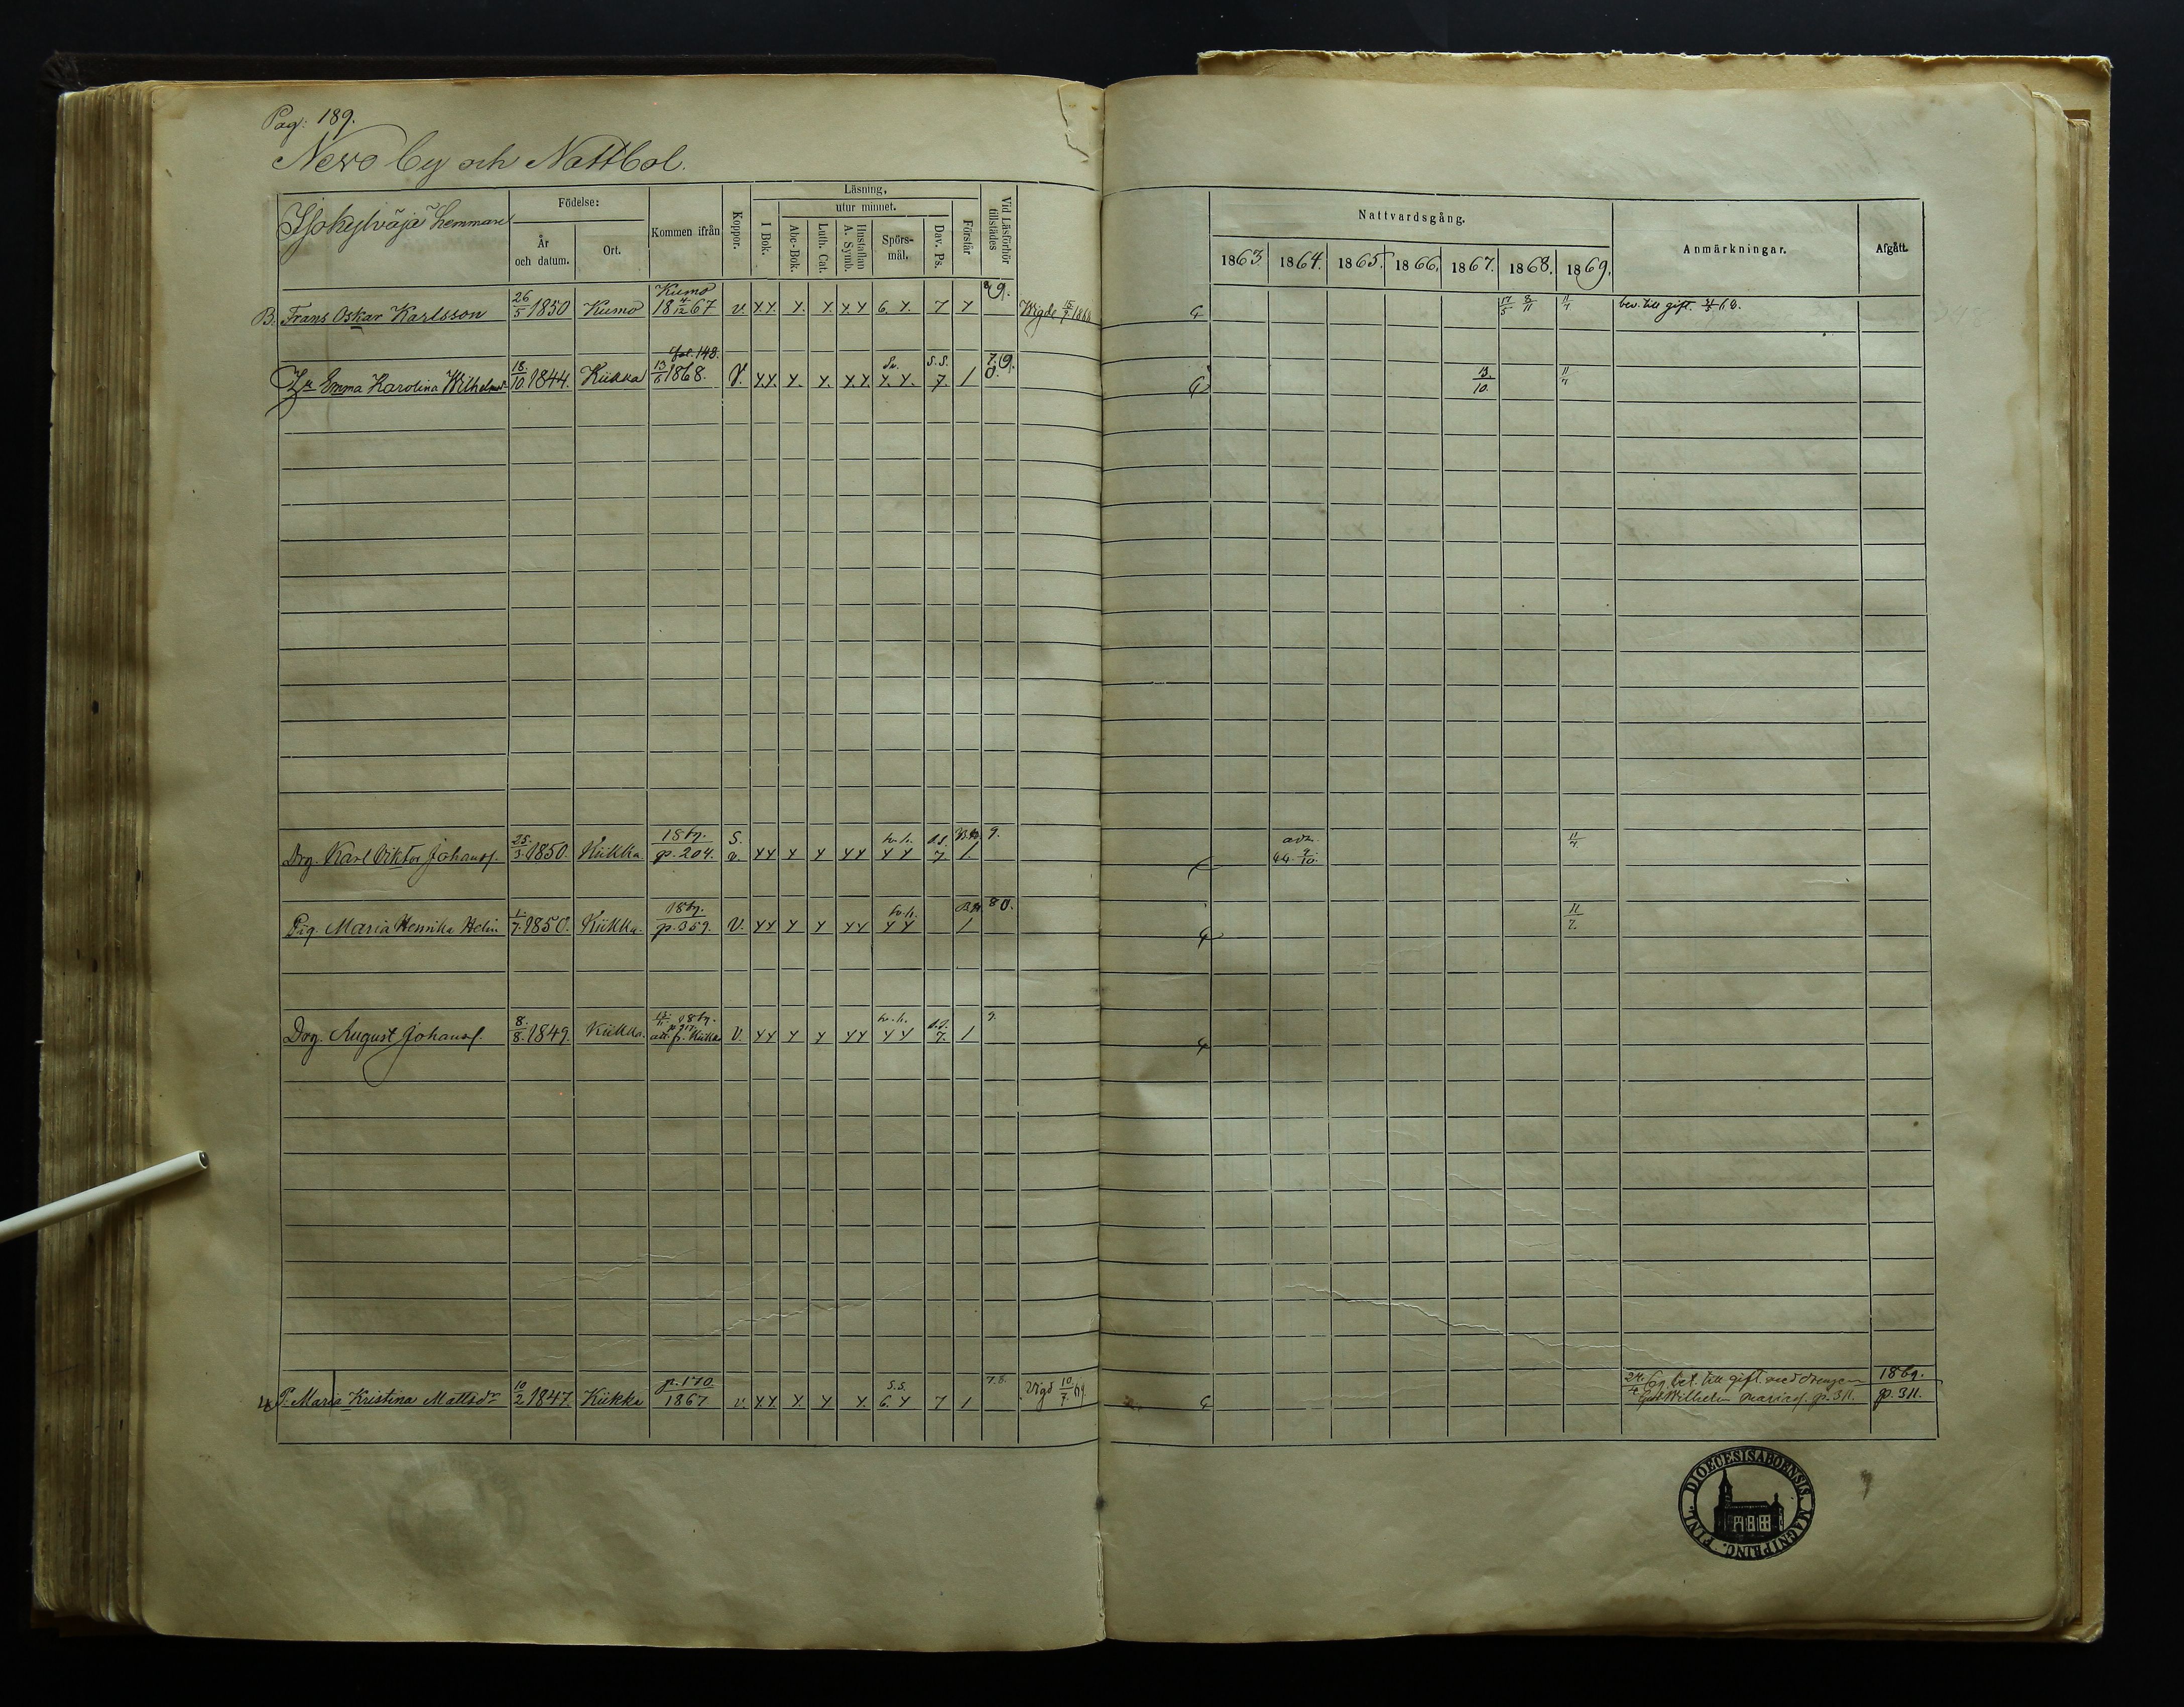 Pag: 189.
Nevo by och Nattbol.
Isokylväjä hemman
Födelse:
År och datum.
Ort.
Kommen ifrån
Koppor.
Läsning,
utur minnet.
I Bok.
Abc-Bok.
Luth. Cat.
Hustaflan A. Symb.
Spörs-mål.
Dav. Ps.
Förstår
Vid Läsförhör tillstädes
Nattvardsgång.
1863. 1864. 1865. 1866. 1867. 1868. 1869.
Anmärkningar.
Afgått.
B. Frans Oskar Karlsson 26/5 1850 Kumo Kumo 18 4/12 67 v. 6 7 9. Wigde 15/7 1868 17/5 8/11 11/7 bev. till gift. 68.
Emma Karolina Wilhelmsd. 18/10 1844. Kiikka fol. 148. 13/6 1868. V. S.S. 7. 1 13/10. 11/7
Drg. Karl Viktor Johanss. 25/3 1850. Kiikka 1869. p. 204. S. v. 7. 1. 9. adm. 11/7
Pig. Maria Henrika Helin 1/7 1850. Kiikka. 1869. p. 359. V. 1 80. 11/7.
Drg. August Johanss. 8/8 1849. Kiikka. 1869. att. fr. Kiikka V. 7. 1 9.
P. Maria Kristina Mattsdr 10/2 1847. Kiikka p. 170 1867 v. S.S. 6. 7 1 7.8. Vigd 10/7 69 24/4 69 bet. till gift. med drengen Wilhelm p. 311. 1869. p. 311.
DIOECESIS ABOENSIS. MAGNI PRINC. FINL.